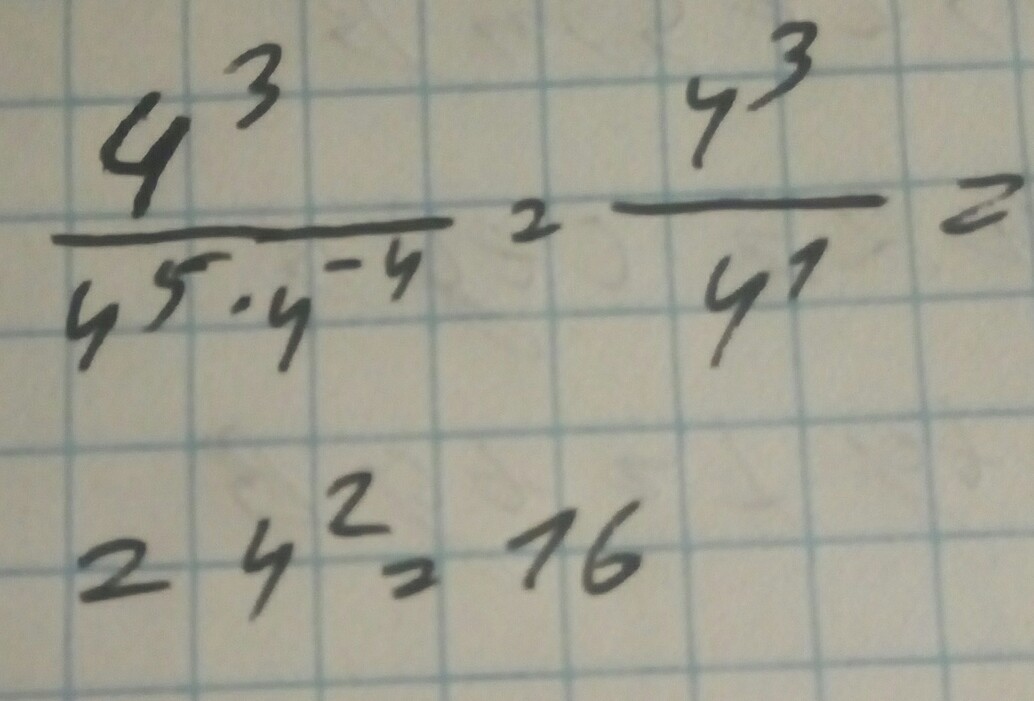 4³/(4⁵·4⁻⁴) = 4³/4¹ =
= 4² = 16